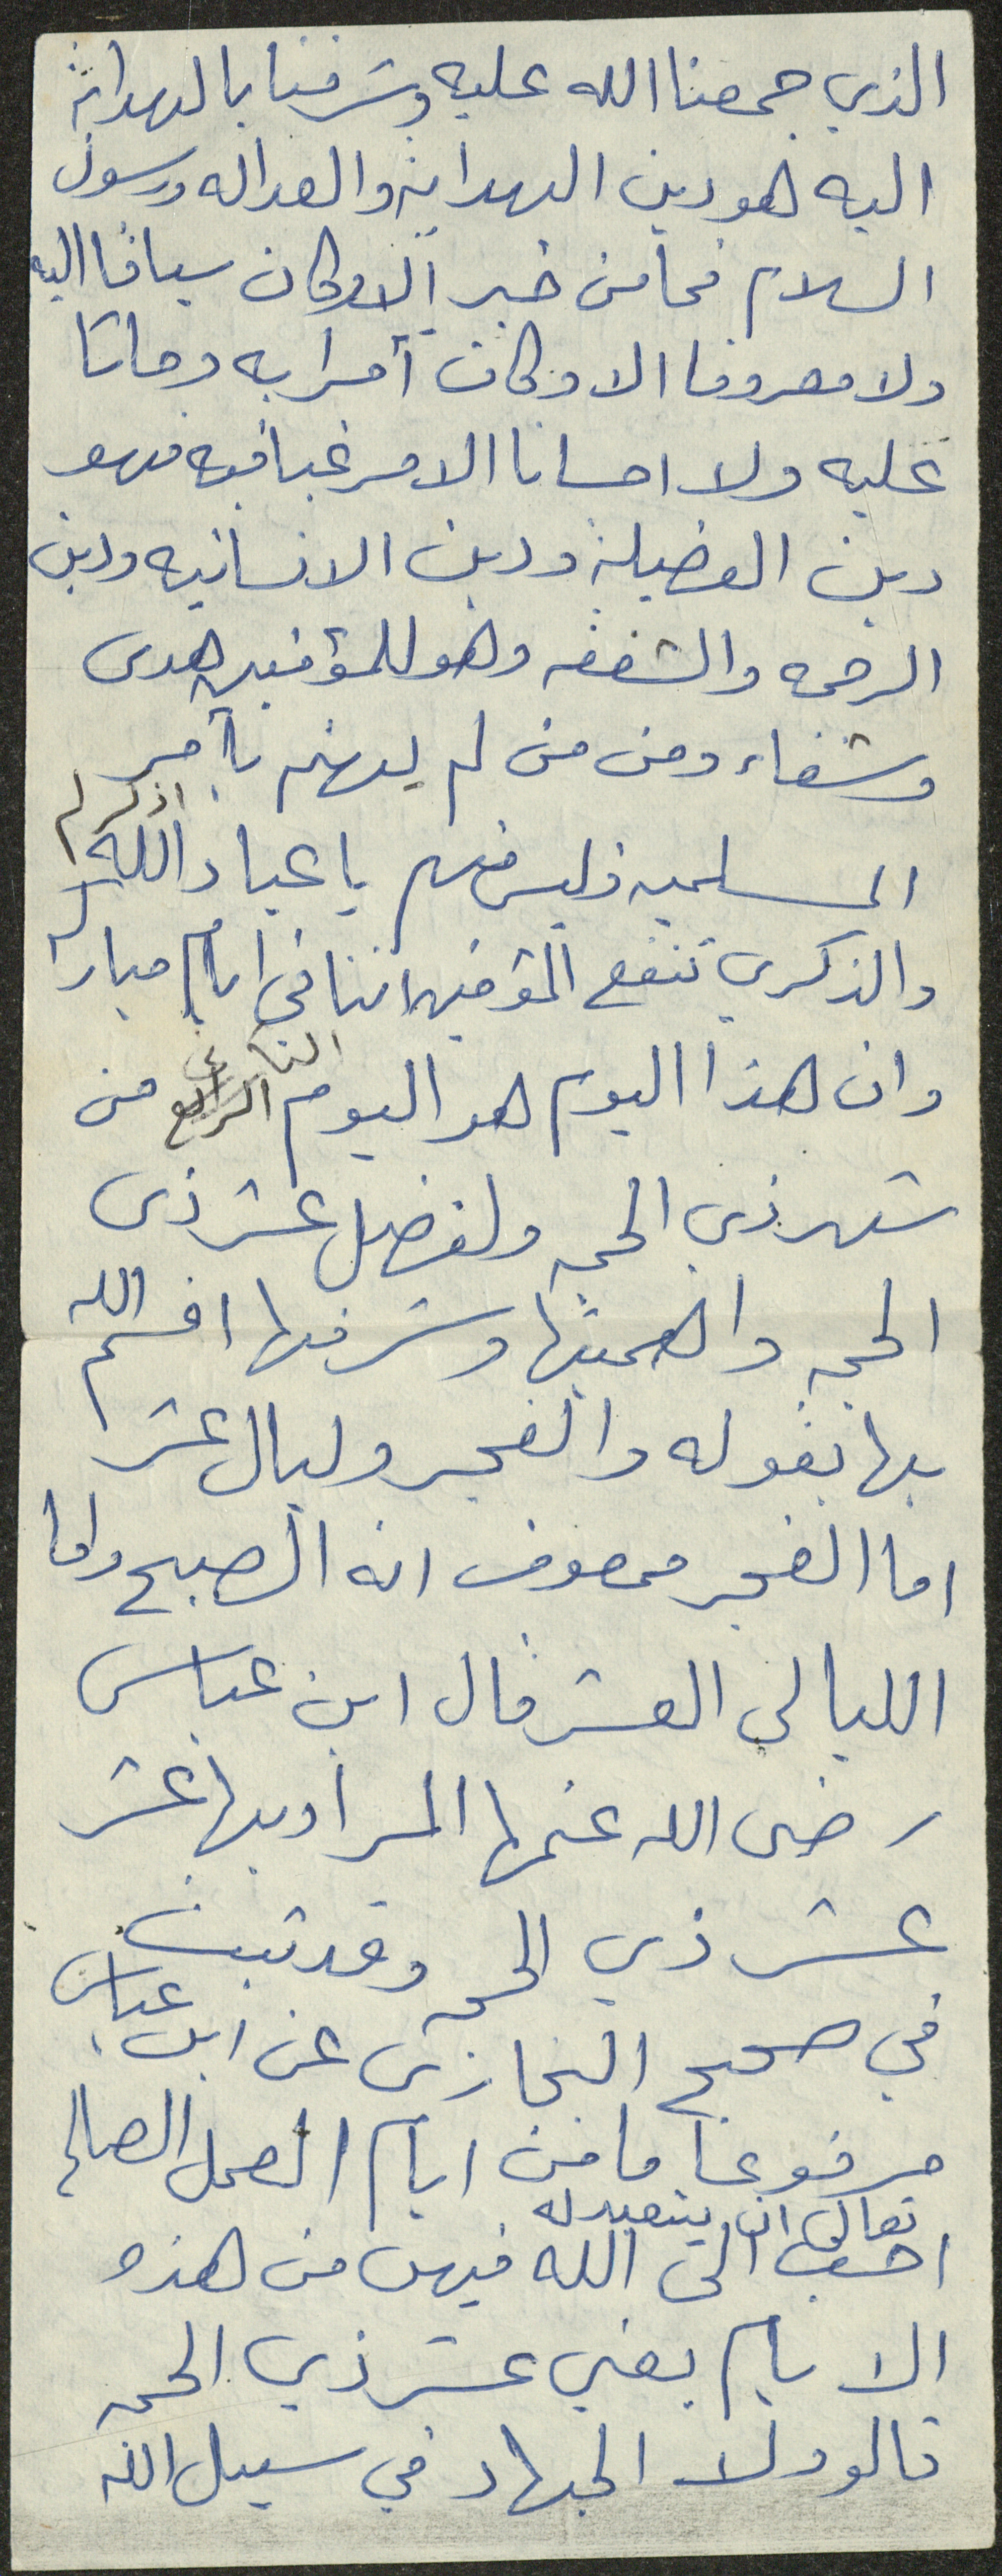 الذي جمعنا الله عليه وشرفنا بالهداية
اليه هو دين الهداية والعداله ورسول
السلام فما من خير الا وكان سباقا اليه
ولا معروفا الا وكان آمرا به وحاثا
عليه ولا احسانا الا مرغبا فيه فهو
دين الفضيلة ودين الانسانيه ودين
الرحمه والشفقه وهو للمؤمنين هدى
وشفاء ومن من لم يهتم بأمر
المسلمين فليس منهم يا عباد الله اذكركم
والذكرى تنفع المؤمنين اننا في ايام مباركة
وان هذا اليوم هو اليوم الرابع الثاني من
شهر ذي الحجه ولفضل عشر ذى
الحجه واهميتها وشرفها اقسم الله
بها بقوله والفجر وليال عشر
اما الفجر فمعروف انه الصبح واما
الليالي العشر قال ابن عباس
رضى الله عنهما المراد بها عشر
عشر ذي الحجه وقد ثبت
في صحيح البخارى عن ابن عباس
مرفوعا ما من ايام العمل الصالح
تعالى ان يتعبد له
احب الى الله فيهن من هذه
الايام يعني عشر ذي الحجه
قالو ولا الجهاد في سبيل الله